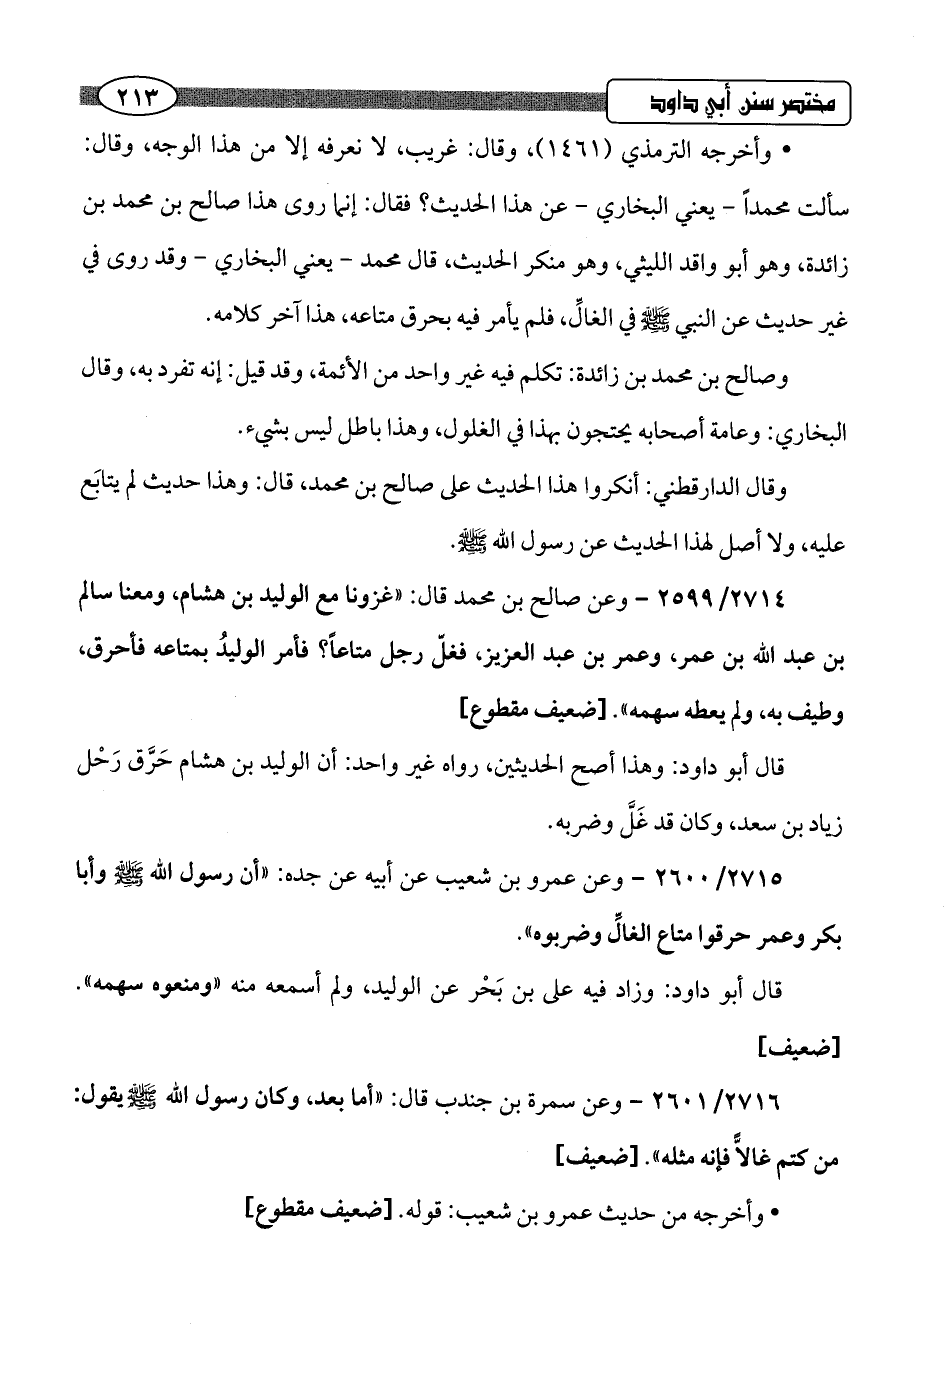 مختصر سنن أبي داود ٢١٣
• وأخرجه الترمذي (١٤٦١)، وقال: غريب، لا نعرفه إلا من هذا الوجه، وقال:
سألت محمداً - يعني البخاري - عن هذا الحديث؟ فقال: إنما روى هذا صالح بن محمد بن
زائدة، وهو أبو واقد الليثي، وهو منكر الحديث، قال محمد - يعني البخاري - وقد روى في
غير حديث عن النبي ﷺ في الغالِّ، فلم يأمر فيه بحرق متاعه، هذا آخر كلامه.
وصالح بن محمد بن زائدة: تكلم فيه غير واحد من الأئمة، وقد قيل: إنه تفرد به، وقال
البخاري: وعامة أصحابه يحتجون بهذا في الغلول، وهذا باطل ليس بشيء.
وقال الدارقطني: أنكروا هذا الحديث على صالح بن محمد، قال: وهذا حديث لم يتابَع
عليه، ولا أصل لهذا الحديث عن رسول الله ﷺ.
٢٥٩٩/٢٧١٤ - وعن صالح بن محمد قال: «غزونا مع الوليد بن هشام، ومعنا سالم
بن عبد الله بن عمر، وعمر بن عبد العزيز، فغلّ رجل متاعاً؟ فأمر الوليدُ بمتاعه فأحرق،
وطيف به، ولم يعطه سهمه». [ضعيف مقطوع]
قال أبو داود: وهذا أصح الحديثين، رواه غير واحد: أن الوليد بن هشام حَرَّق رَحْل
زياد بن سعد، وكان قد غَلَّ وضربه.
٢٦٠٠/٢٧١٥ - وعن عمرو بن شعيب عن أبيه عن جده: «أن رسول الله ﷺ وأبا
بكر وعمر حرقوا متاع الغالِّ وضربوه».
قال أبو داود: وزاد فيه على بن بَحْر عن الوليد، ولم أسمعه منه «ومنعوه سهمه».
[ضعيف]
٢٦٠١/٢٧١٦ - وعن سمرة بن جندب قال: «أما بعد، وكان رسول الله ﷺ يقول:
من كتم غالاًّ فإنه مثله». [ضعيف]
• وأخرجه من حديث عمرو بن شعيب: قوله. [ضعيف مقطوع]